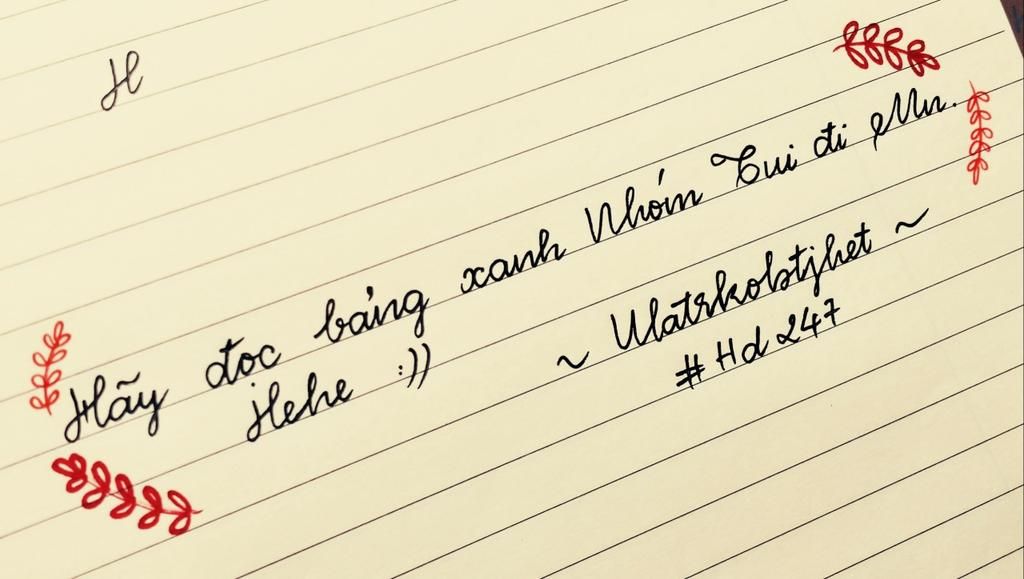 H
Hãy đọc bảng xanh Nhóm Tui đi Mn.
Hehe :))
~ Ulatrkolstjhet ~
# Hd 247